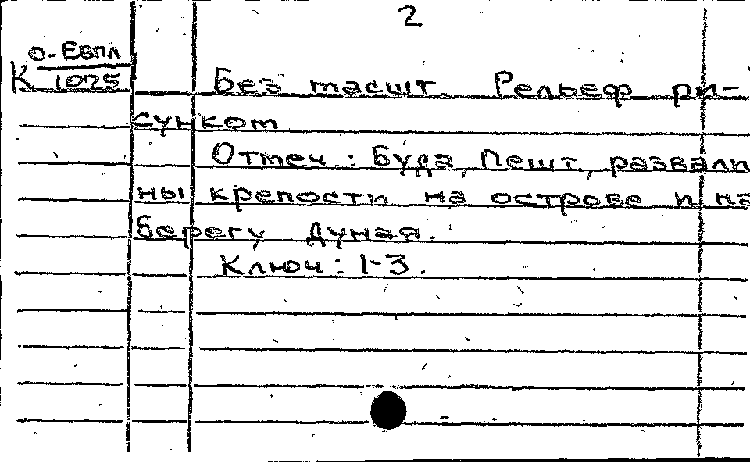 2
О-Евпл
К 1025
Без масшт. Рельеф ри-
сунком
Отмеч: Буда, Пешт, развали
ны крепости на острове и на
берегу Дуная.
Ключ: 1-3.